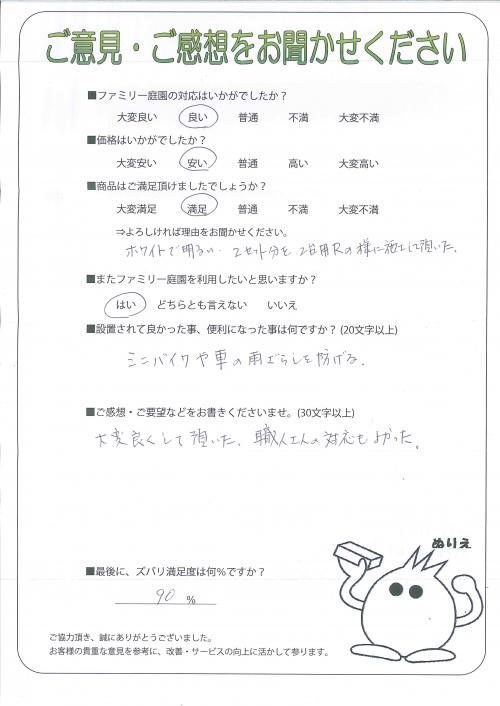 ご意見・ご感想をお聞かせください
■ファミリー庭園の対応はいかがでしたか？
大変良い 良い 普通 不満 大変不満
■価格はいかがでしたか？
大変安い 安い 普通 高い 大変高い
■商品はご満足頂けましたでしょうか？
大変満足 満足 普通 不満 大変不満
⇒よろしければ理由をお聞かせください。
ホワイトで明るい. 2セット分を 2台用Rの様に施工して頂いた.
■またファミリー庭園を利用したいと思いますか？
はい どちらとも言えない いいえ
■設置されて良かった事、便利になった事は何ですか？(20文字以上)
ミニバイクや車の雨ざらしを防げる.
■ご感想・ご要望などをお書きくださいませ。(30文字以上)
大変良くして頂いた. 職人さんの対応もよかった.
ぬりえ
■最後に、ズバリ満足度は何％ですか？
90 %
ご協力頂き、誠にありがとうございました。
お客様の貴重な意見を参考に、改善・サービスの向上に活かして参ります。